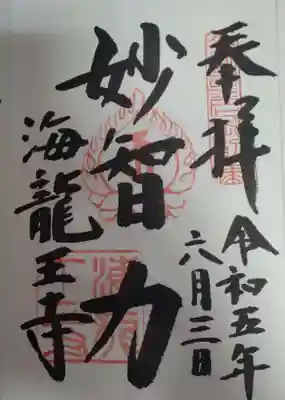 奉拝
令和五年
六月三日
妙智力
海龍王寺